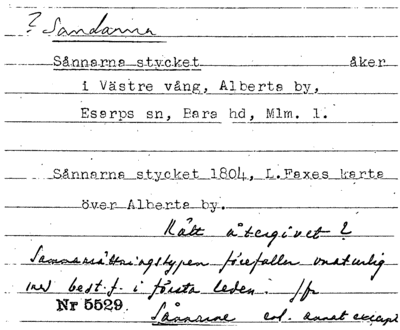 ? Sandarna
Sånnarna stycket åker
i Västre vång, Alberta by,
Esarps sn, Bara hd, Mlm. l.
Sånnarna stycket 1804, L.Faxes karta
över Alberta by.
Rätt återgivet?
Sammansättningstypen förefaller onaturlig
med best.f. i första leden. Jfr
Nr 5529. Sånnarne enl. annat excerpt